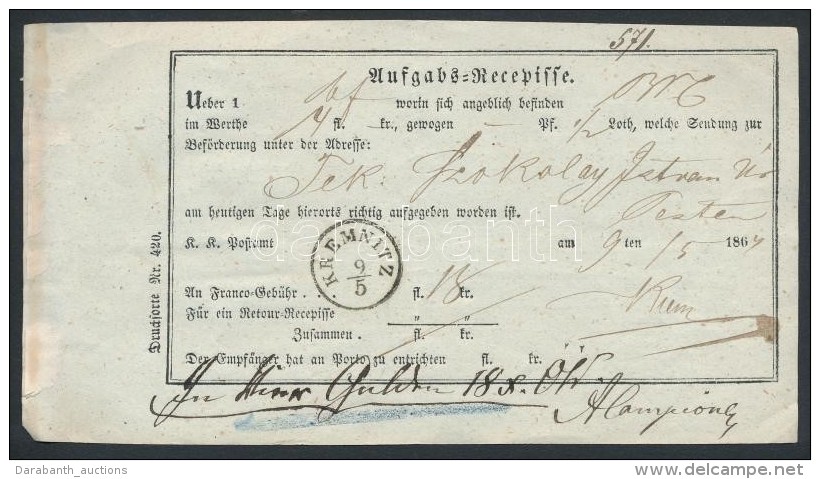 571.
Aufgabs=Recepisse.
Ueber 1 bf worin sich angeblich befinden BNC
im Werthe 4 fl. — kr., gewogen — Pf. 1/2 Loth, welche Sendung zur
Beförderung unter der Adresse:
Tek: Szokolay Istvan Úr
am heutigen Tage hierorts richtig aufgegeben worden ist. Pesten
K. K. Postamt am 9 ten 5 1864
KREMNITZ
9
5
An Franco-Gebühr . . . fl. 18 kr.
Für ein Retour-Recepisse „ „
Zusammen . fl. kr.
Der Empfänger hat an Porto zu entrichten fl. kr.
Drucksorte Nr. 420.
In Vier Gulden 18 x. ÖW.
darabanth
Darabanth_auctions
delcampe.net